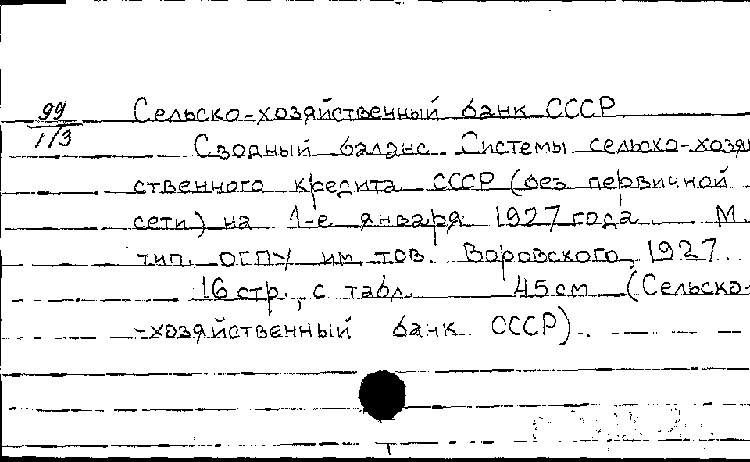 99 Сельско-хозяйственный банк СССР
1/3 Сводный баланс Системы сельско-хозяй
ственного кредита СССР (без первичной
сети) на 1-е января 1927 года М.
тип. ОГПУ им. тов. Воровского, 1927.
16 стр., с табл. 45см (Сельско-
-хозяйственный банк СССР).